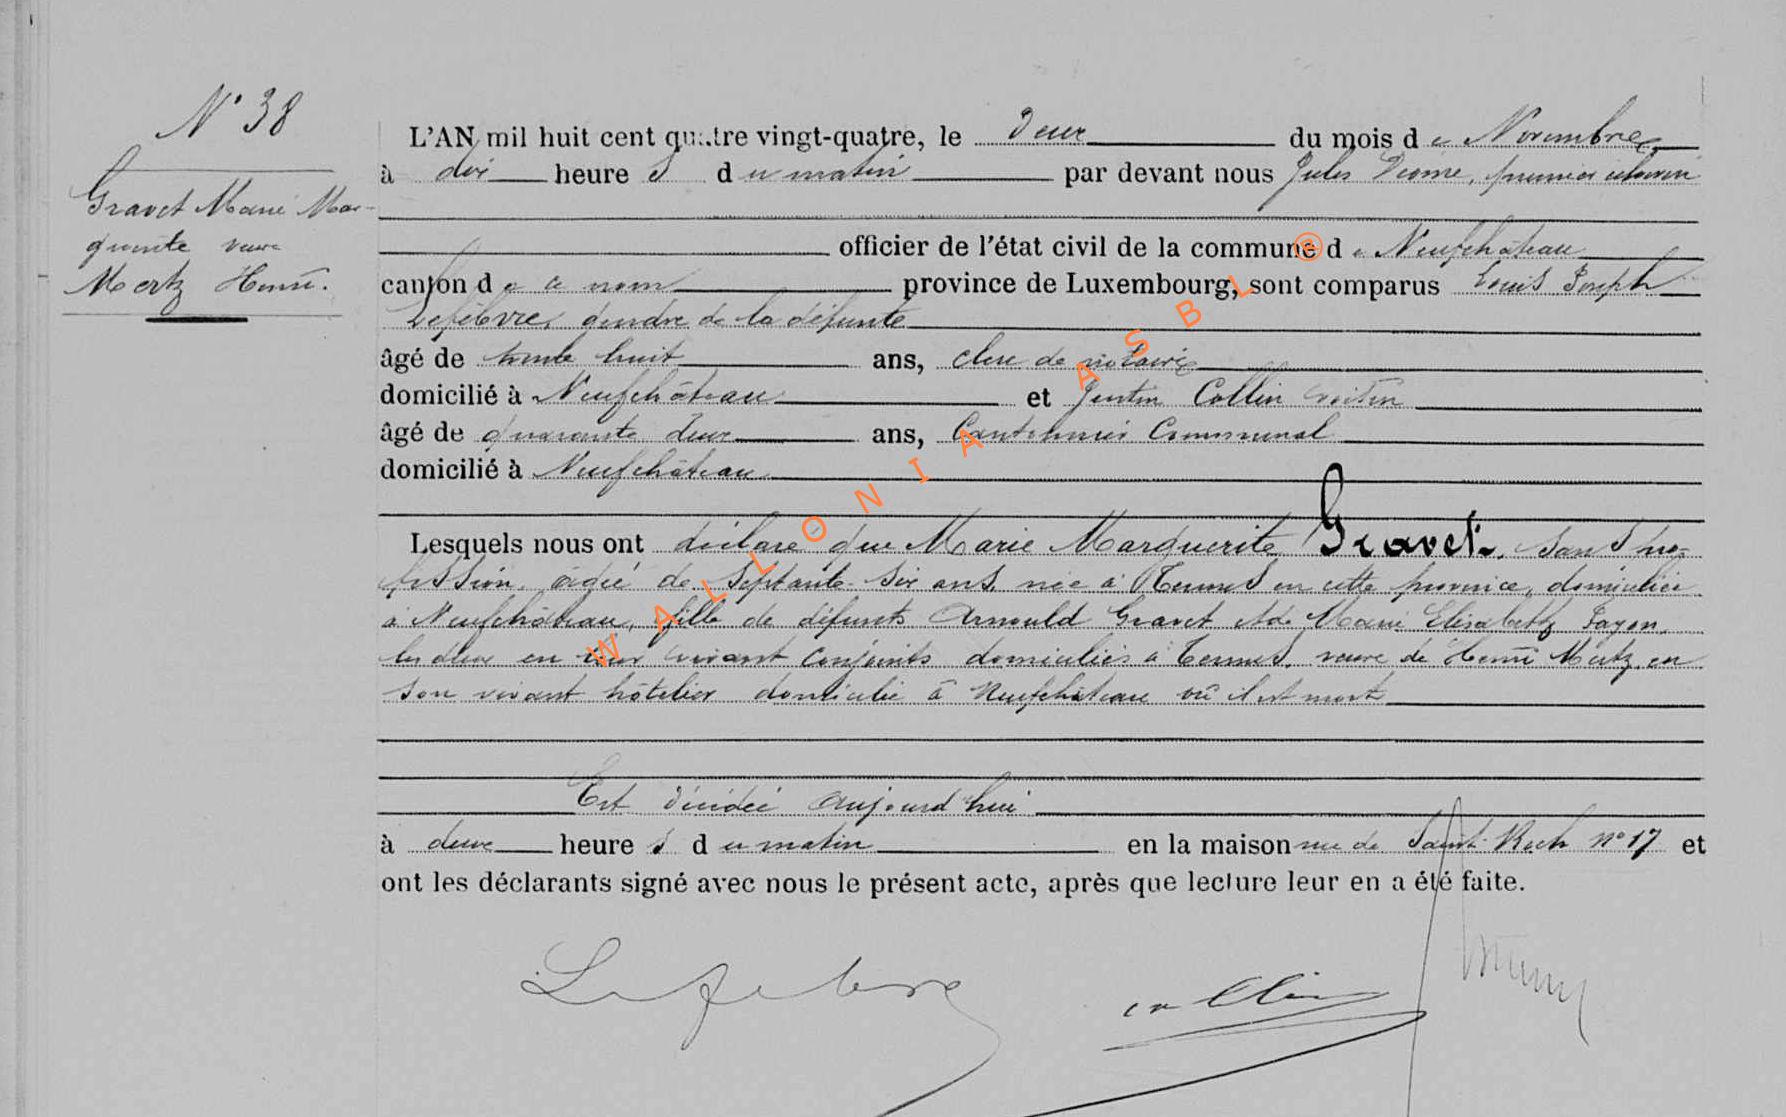 N° 38
Gravet Marie Mar-
guerite veuve
Mertz Henri.
L'AN mil huit cent quatre vingt-quatre, le deux du mois de Novembre
à dix heures du matin par devant nous Jules premier échevin
officier de l'état civil de la commune de Neufchâteau
canton de ce nom province de Luxembourg, sont comparus Louis Joseph
Lefèbvre, gendre de la défunte
âgé de trente huit ans, clerc de notaire
domicilié à Neufchâteau et Justin Collin voisin
âgé de quarante deux ans, Cantonnier Communal
domicilié à Neufchâteau
Lesquels nous ont déclaré que Marie Marguerite Gravet, sans pro-
fession, âgée de septante-six ans, née à en cette province, domiciliée
à Neufchâteau, fille de défunts Arnould Gravet et de Marie Elisabeth
les deux en leur vivant conjoints domiciliés à veuve de Henri Mertz en
son vivant hôtelier domicilié à Neufchâteau où il est mort
Est décédée aujourd'hui
à deux heures du matin en la maison rue de Saint-Roch n° 17 et
ont les déclarants signé avec nous le présent acte, après que lecture leur en a été faite.
Lefebvre collin
WALLONIA ASBL ®